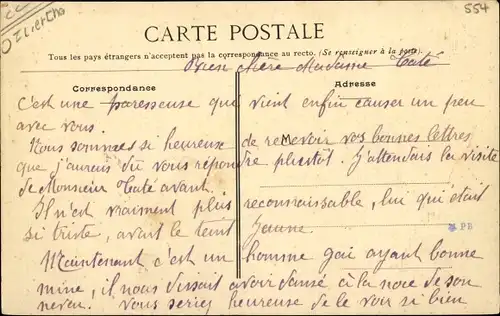 554
CARTE POSTALE
Tous les pays étrangers n'acceptent pas la correspondance au recto. (Se renseigner à la poste).
Bien chère Madame Caté
Correspondance
Adresse
C'est une paresseuse qui vient enfin causer un peu
avec vous.
Nous sommes si heureuse de recevoir vos bonnes lettres
que j'aurais dû vous répondre plutôt. J'attendais la visite
de Monsieur Caté avant.
Il n'est vraiment plus reconnaissable, lui qui était
si triste, avait le teint jaune.
PB
Maintenant c'est un homme gai ayant bonne
mine, il nous disait avoir dansé à la noce de son
neveu. Vous seriez heureuse de le voir si bien